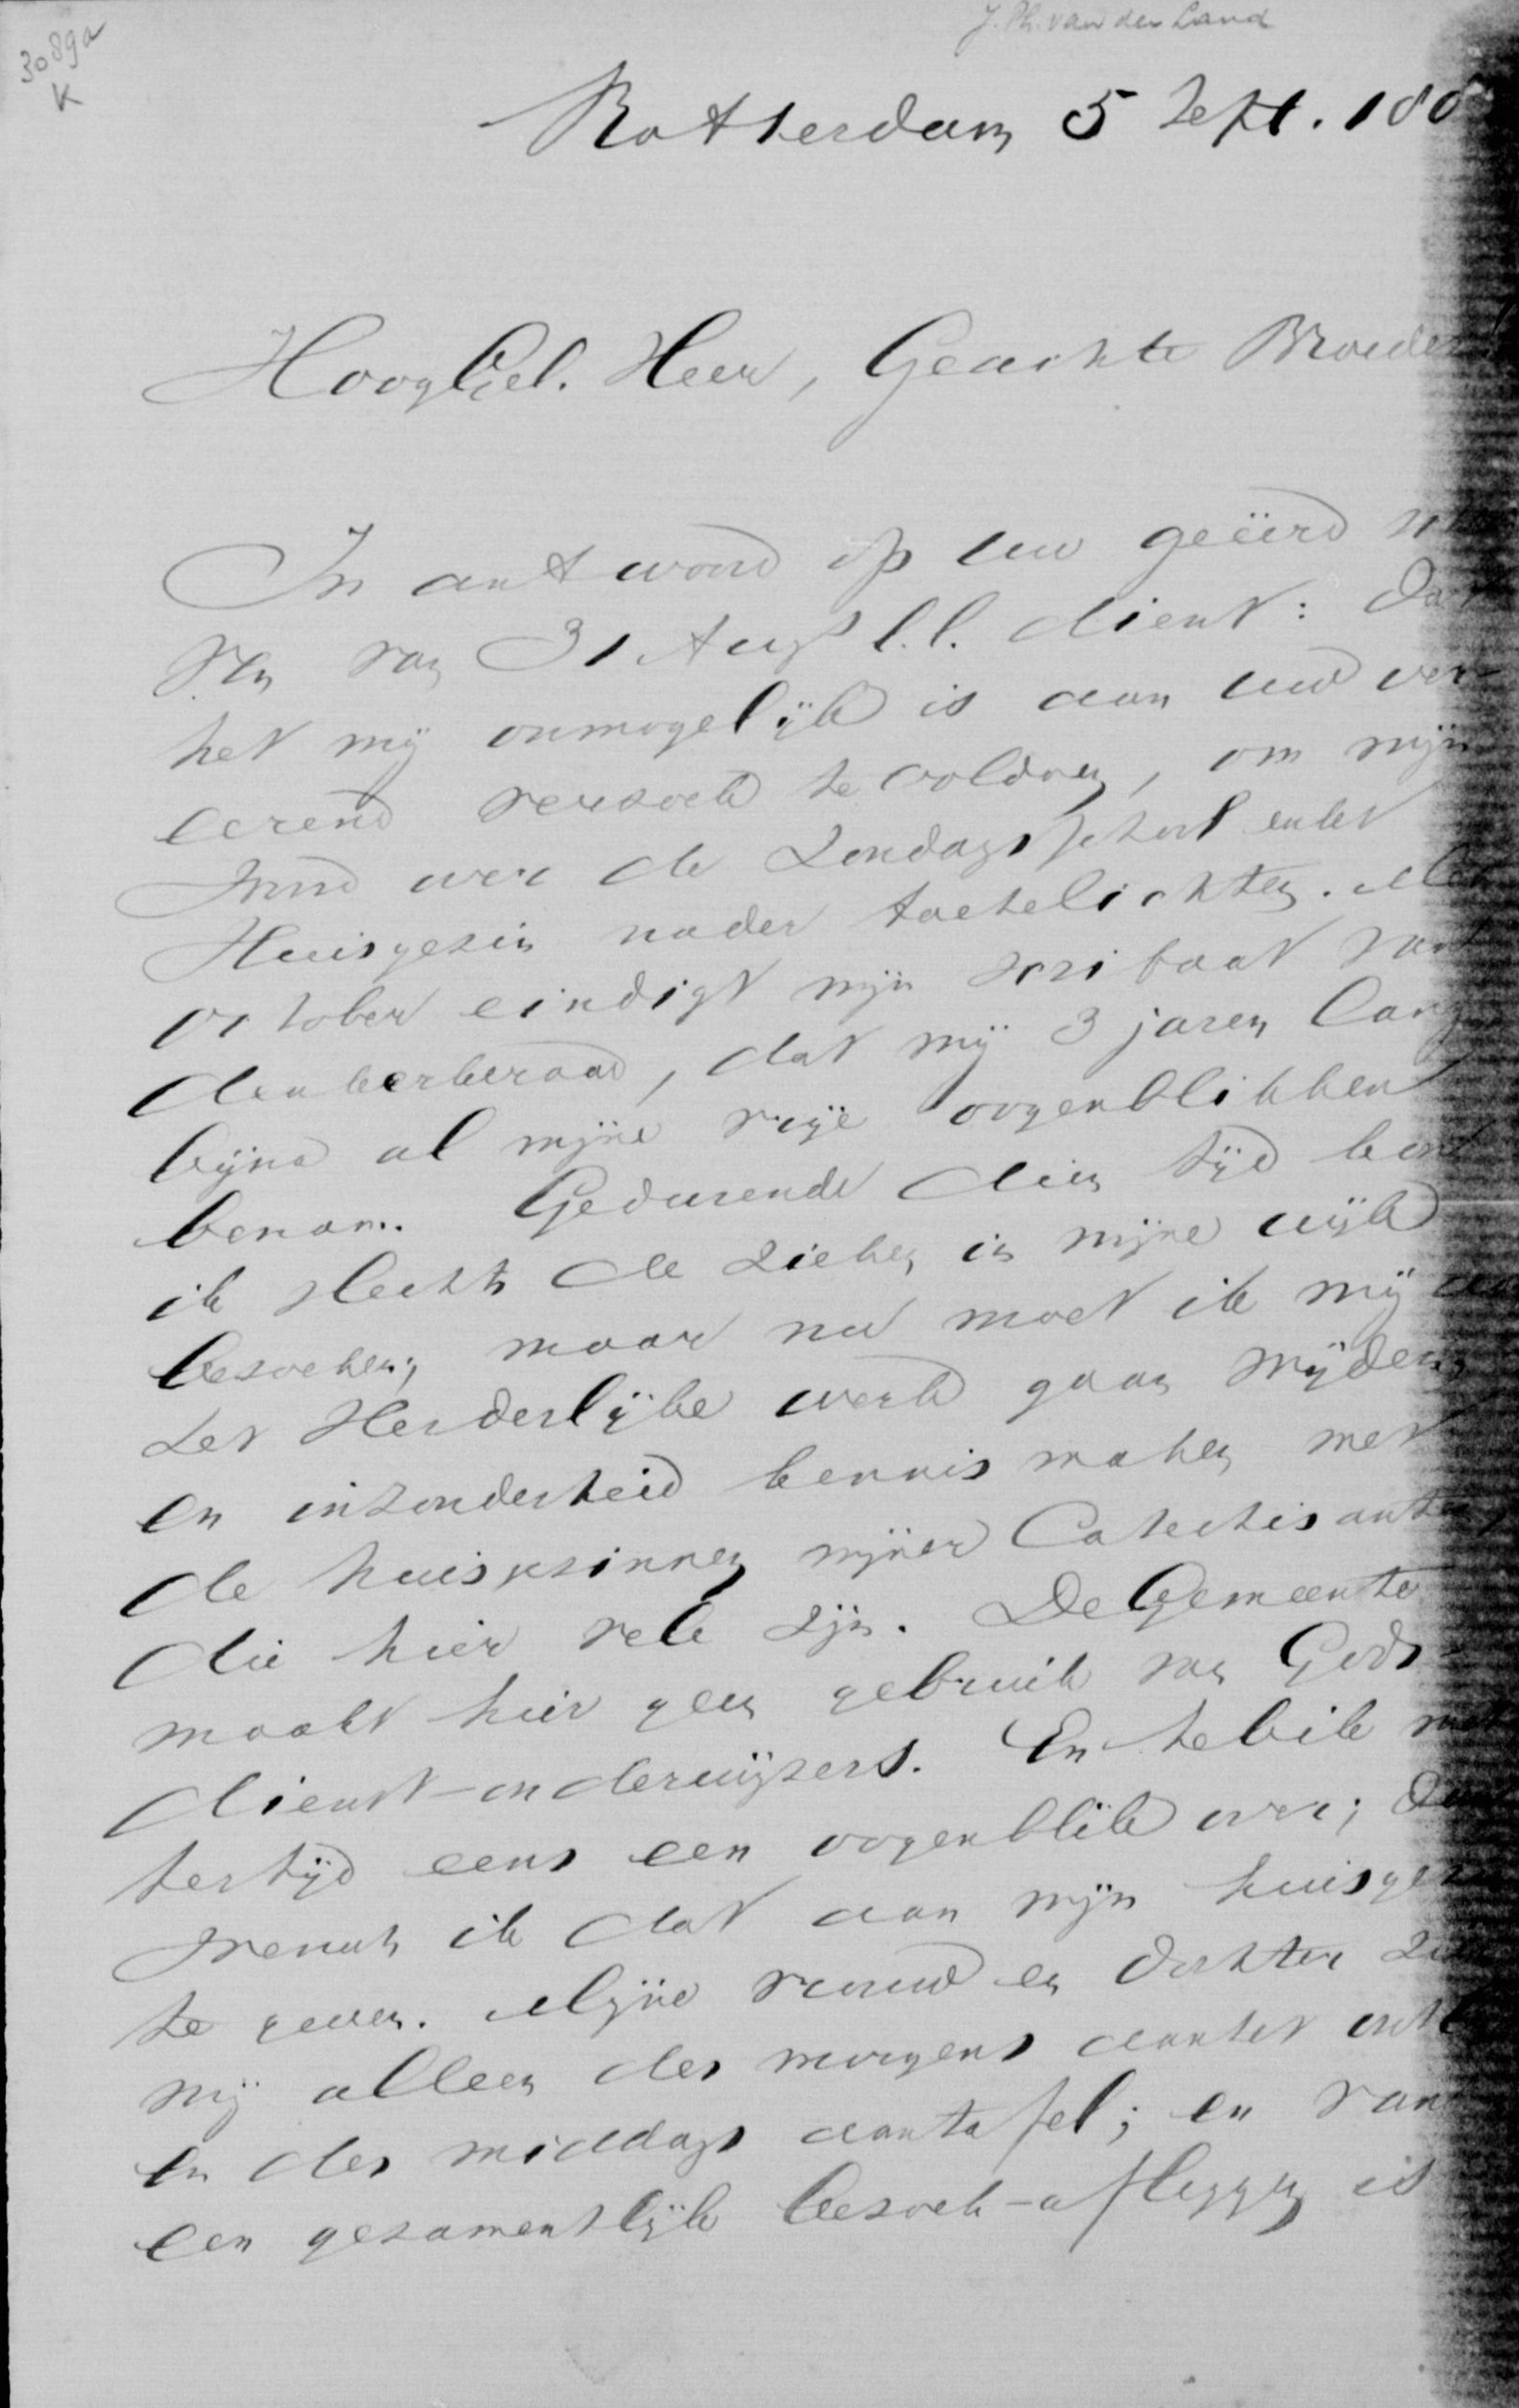 J. Ph. van der Land
3089a
K
Rotterdam 5 Sept. 188
HoogGel. Heer, Geachte Broeder!
In antwoord op uw geëerd
van 31 Aug l.l. dient: dat
het mij onmogelijk is aan uw ver-
eerend verzoek te voldoen, om mijn
over de Zondagsschool en het
Huisgezin nader toetelichten. Met
October eindigt mijn scribaat van
den kerkeraad, dat mij 3 jaren lang
bijna al mijne vrije oogenblikken
benam. Gedurende dien tijd kon
ik slechts de zieken in mijne wijk
bezoeken; maar nu moet ik mij aan
het Herderlijke werk gaan wijden
en inzonderheid kennis maken met
de huisgezinnen mijner Catechisanten,
die hier vele zijn. De Gemeente
maakt hier geen gebruik van Gods-
dienst-onderwijzers. En heb ik met
tertijd eens een oogenblik over; dan
wensch ik dat aan mijn huisgezin
te geven. Mijne vrouw en dochter zien
mij alleen des morgens aan het ontb
en des middags aan tafel; en van
een gezamentlijk bezoek-afleggen is